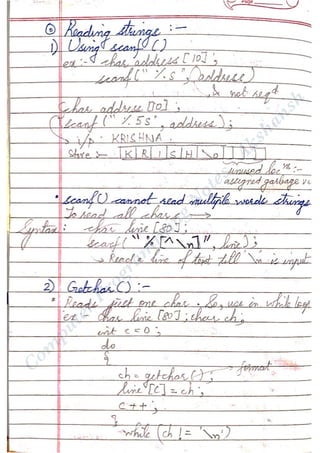 Reading strings :-
1) Using scanf ()
ex:- char address [10] ;
scanf (" %s ", address)
& not reqd
char address [10] ;
scanf (" %5s ", address) ;
i/p : KRISHNA
Store :- K R I S H \0
unused locns :-
assigned garbage v
• scanf() cannot read multiple words strings
To read all chars →
Syntax: char line [80] ;
scanf( "%[^\n]", line) ;
↳ Reads line of text till \n is input
2) Getchar () :-
• Reads just one char. So, use in while loop
ex - Char line [80] ; char ch ;
int c = 0 ;
do
{
ch = getchar() ; → format
line [c] = ch ;
c++ ;
}
while (ch != '\n')